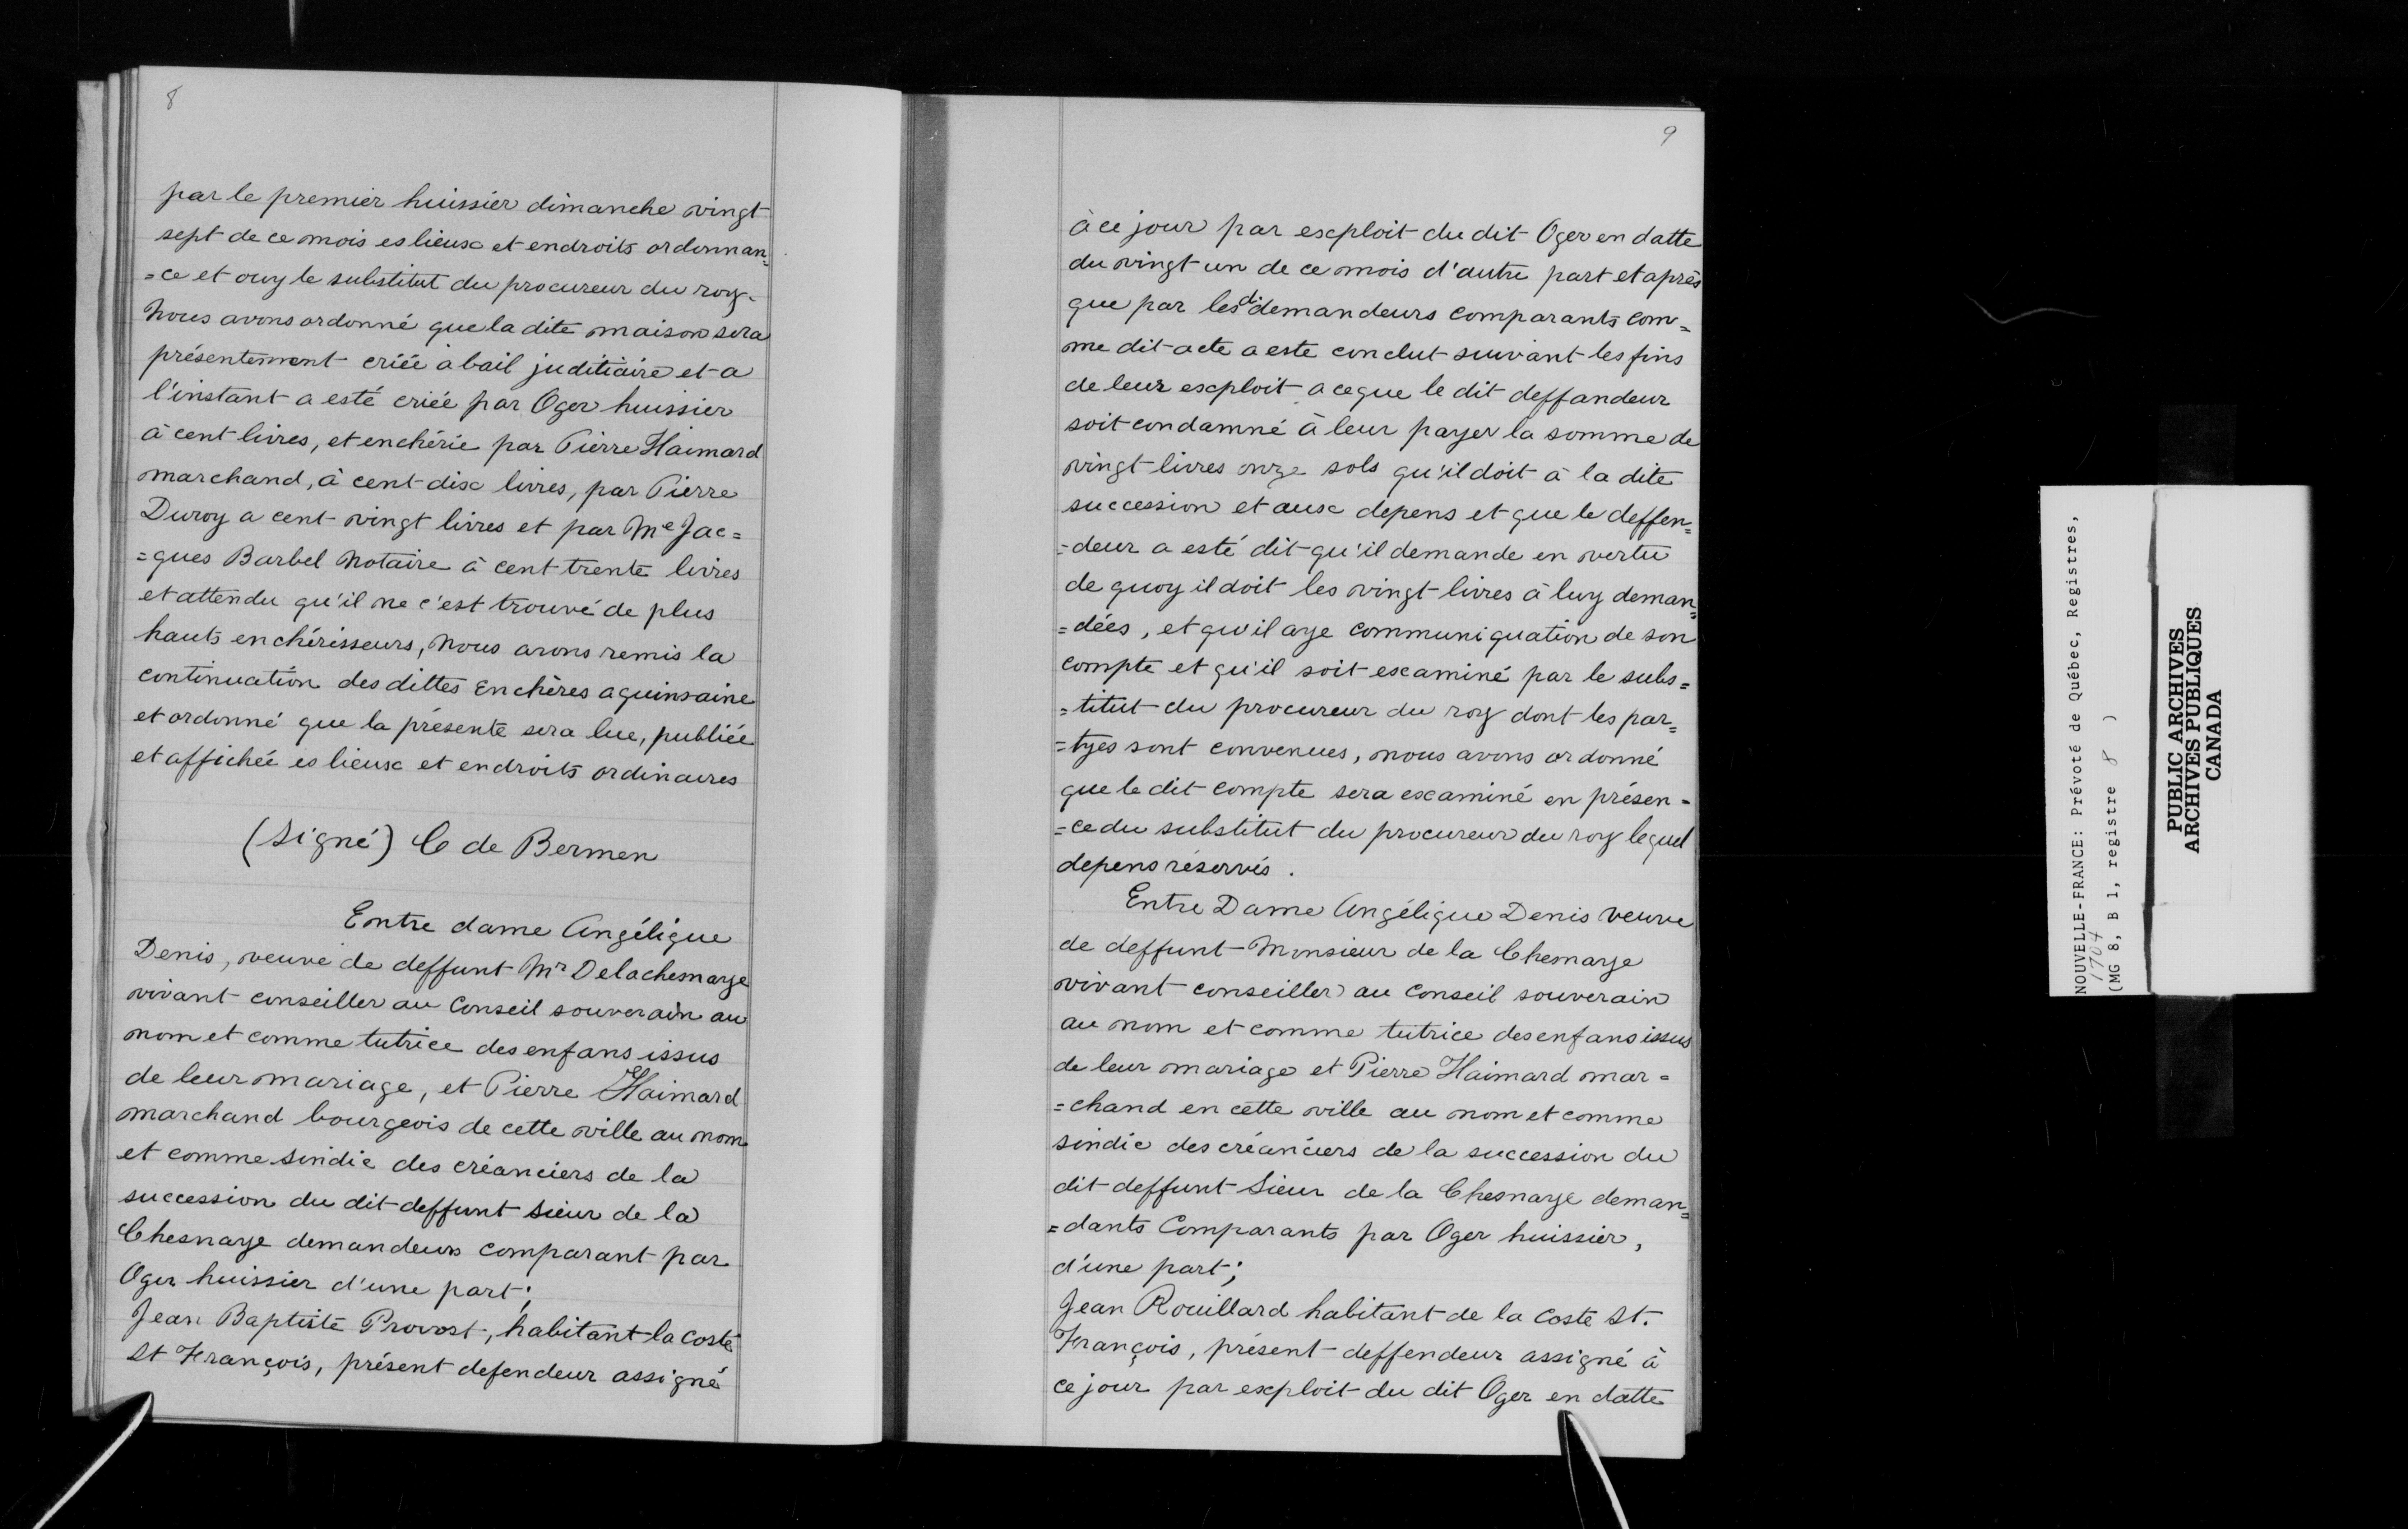 8
par le premier huissier dimanche vingt
sept de ce mois es lieux et endroits ordonnan=
=ce et ouy le substitut du procureur du roy.
Nous avons ordonné que la dite maison sera
présentement criée a bail juditiaire et a
l'instant a esté criée par Oger huissier
à cent livres, et enchérie par Pierre Haimard
marchand, à cent dix livres, par Pierre
Duroy a cent vingt livres et par Me Jac=
=ques Barbel Notaire à cent trente livres
et attendu qu'il ne c'est trouvé de plus
hauts enchérisseurs, nous avons remis la
continuation des dittes Enchères a quinsaine
et ordonné que la présente sera lue, publiée
et affichée es lieux et endroits ordinaires
(Signé) C de Bermen
Entre dame Angélique
Denis, veuve de deffunt Mr Delachesnaye
vivant conseiller au Conseil souverain au
nom et comme tutrice des enfans issus
de leur mariage, et Pierre Haimard
marchand bourgeois de cette ville au nom
et comme sindic des créanciers de la
succession du dit deffunt Sieur de la
Chesnaye demandeurs comparant par
Oger huissier d'une part;
Jean Baptiste Provost, habitant la coste
St François, présent defendeur assigné
9
à ce jour par exploit du dit Oger en datte
du vingt un de ce mois d'autre part et après
que par les di demandeurs comparants com=
me dit acte a este conclut suivant les fins
de leur exploit a ceque le dit deffandeur
soit condamné à leur payer la somme de
vingt livres onze sols qu'il doit à la dite
succession et aux depens et que le deffen=
=deur a esté dit qu'il demande en vertu
de quoy il doit les vingt livres à luy deman=
=dées, et qu'il aye communiquation de son
compte et qu'il soit examiné par le subs=
=titut du procureur du roy dont les par=
=tyes sont convenues, nous avons ordonné
que le dit compte sera examiné en présen=
=ce du substitut du procureur du roy lequel
depens réservés.
Entre Dame Angélique Denis veuve
de deffunt Monsieur de la Chesnaye
vivant conseiller au Conseil souverain
au nom et comme tutrice des enfans issus
de leur mariage et Pierre Haimard mar=
=chand en cette ville au nom et comme
sindic des créanciers de la succession du
dit deffunt Sieur de la Chesnaye deman=
=dants Comparants par Oger huissier,
d'une part;
Jean Rouillard habitant de la coste St.
François, présent deffendeur assigné à
ce jour par exploit du dit Oger en datte
NOUVELLE-FRANCE: Prévoté de Québec, Registres,
1704
(MG 8, B 1, registre 8 )
PUBLIC ARCHIVES
ARCHIVES PUBLIQUES
CANADA